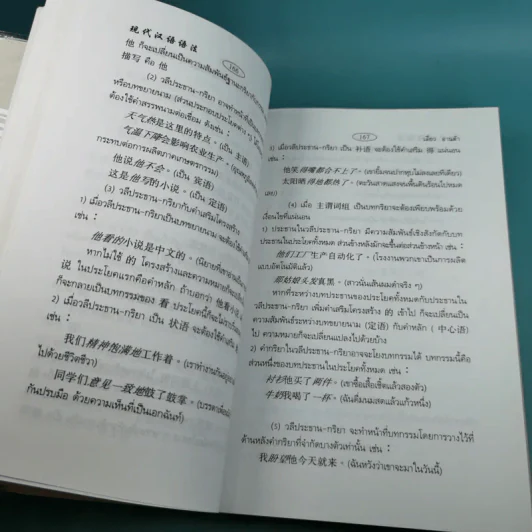 现代汉语语法
166
他 ก็จะเปลี่ยนเป็นความสัมพันธ์ฐานกริยากับ
描写 คือ 他
(2) วลีประธาน-กริยา อาจทำหน้าที่เป็น
หรือบทขยายนาม (ส่วนประกอบประโยคต่าง ๆ)
ต้องใช้คำสรรพนามต่อเชื่อม ดังเช่น :
天气热是这里的特点。(เป็น 主语)
气温下降会影响农业生产。
กระทบต่อการผลิตภาคเกษตรกรรม)
他说他不会。(เป็น 宾语)
这是他写的小说。(เป็น 定语)
(3) วลีประธาน-กริยากับคำเสริมโครงสร้าง
1) เมื่อวลีประธาน-กริยาเป็นบทขยายนาม จะต้องใช้คำ
เช่น :
他看的小说是中文的。(นิยายที่เขาอ่าน
หากไม่ใช้ 的 โครงสร้างและความหมายก็จะเปลี่ยน
说 ในประโยคแรกคือคำหลัก ถ้าบอกว่า 他看小说
ก็จะกลายเป็นบทกรรมของ 看 ประโยคนี้ก็จะไม่
2) เมื่อวลีประธาน-กริยา เป็น 状语 จะต้องใช้คำเสริม
เช่น :
我们精神饱满地工作着。(เราทำงานกันอยู่
ไปด้วยชีวิตชีวา)
同学们意见一致地鼓了鼓掌。(บรรดาเพื่อน
กันปรบมือ ด้วยความเห็นที่เป็นเอกฉันท์)
167
เมี่ยว ยานค้า
3) เมื่อวลีประธาน-กริยา เป็น 补语 จะต้องใช้คำเสริม 得 แน่นอน
เช่น :
他笑得嘴都合不上了。(เขายิ้มจนปากหุบไม่ลงเลยทีเดียว)
太阳晒得地都热了。(ตะวันสาดแสงจนพื้นดินร้อนไปหมด
เลย)
(4) เมื่อ 主谓词组 เป็นบทกริยาจะต้องเพียบพร้อมด้วย
เงื่อนไขที่แน่นอน
1) ประธานในวลีประธาน-กริยา มีความสัมพันธ์เชิงสังกัดกับบท
ประธานในประโยคทั้งหมด ส่วนข้างหลังมักจะขึ้นต่อส่วนข้างหน้า เช่น :
他们工厂生产自动化了。(โรงงานพวกเขาเป็นการผลิต
แบบอัตโนมัติแล้ว)
那姑娘头发真黑。(สาวนั่นเส้นผมดำจริง ๆ)
หากที่ระหว่างบทประธานของประโยคทั้งหมดกับประธานใน
วลีประธาน-กริยา เพิ่มคำเสริมโครงสร้าง 的 เข้าไป ก็จะเปลี่ยนเป็น
ความสัมพันธ์ระหว่างบทขยายนาม (定语) กับคำหลัก (中心语)
ไป ความหมายก็จะเปลี่ยนแปลงไปด้วยบ้าง
2) คำกริยาในวลีประธาน-กริยาอาจจะโยงบทกรรมได้ บทกรรมนี้คือ
ส่วนหนึ่งของบทประธานในประโยคทั้งหมด เช่น :
衬衫他买了两件。(เขาซื้อเสื้อเชิ้ตแล้วสองตัว)
牛奶我喝了一杯。(ฉันดื่มนมสดแล้วแก้วหนึ่ง)
(5) วลีประธาน-กริยา จะทำหน้าที่บทกรรมโดยการวางไว้ที่
ด้านหลังคำกริยาที่จำกัดบางตัวเท่านั้น เช่น :
我盼望他今天就来。(ฉันหวังว่าเขาจะมาในวันนี้)